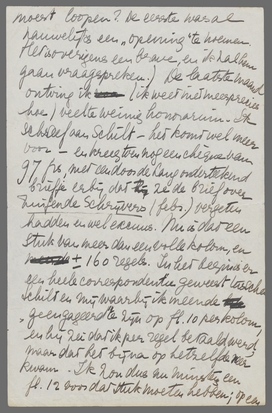 moest loopen? De eerste was al
nauwelijks een „opening" te noemen
Het is overigens een brave, en ik zal hem
gaan vraagspreken.) De laatste maand
ontving ik (ik weet niet meer precies
hoe) veel te weinig honorarium. Ik
schreef aan Schilt - het komt wel meer
voor - en kreeg toen nog een chèque van
97 frs, met een door de Lang onderteekend
briefje erbij, dat ze de brief over
zuipende Schrijvers (febr.) vergeten
hadden en wel excuus. Nu is dat een
stuk van meer dan een volle kolom, en
± 160 regels. In het begin is er
een heele correspondentie geweest tusschen
Schilt en mij waarbij ik meende
„geëngageerd te zijn op fl. 10 per kolom,
en hij zei dat ik per regel betaald werd,
maar dat het bijna op hetzelfde neer
kwam. Ik zou dus au minstens een
fl. 12 voor dat stuk moeten hebben; op een